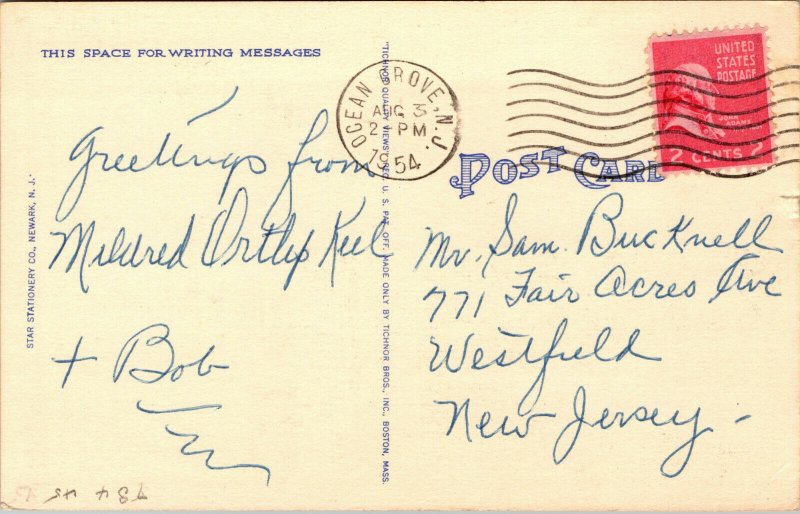 THIS SPACE FOR WRITING MESSAGES
Greetings from
Mildred Ortlip Keel
+ Bob
STAR STATIONERY CO., NEWARK, N. J.
"TICHNOR QUALITY VIEWS" REG. U. S. PAT. OFF. MADE ONLY BY TICHNOR BROS., INC., BOSTON, MASS.
OCEAN GROVE, N.J.
AUG 3
2 PM
1954
UNITED
STATES
POSTAGE
JOHN
ADAMS
2 CENTS 2
POST CARD
Mr. Sam. Bucknell
771 Fair Acres Ave
Westfield
New Jersey -